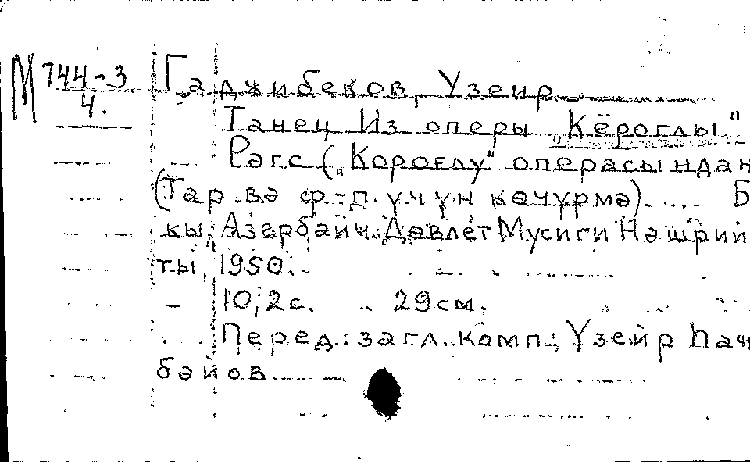 М 744-3
4.
Гаджибеков, Узеир
Танец Из оперы "Кёроглы"
Рәгс ("Короғлу" операсындан
(Тар вә ф-п. үчүн көчүрмә). Б
кы, Азәрбайҹ. Дөвләт Мусиги Нәшрий
ты, 1950.
10, 2 с. 29 см.
Перед. загл. комп.: Үзейр Һаҹ
бәйов